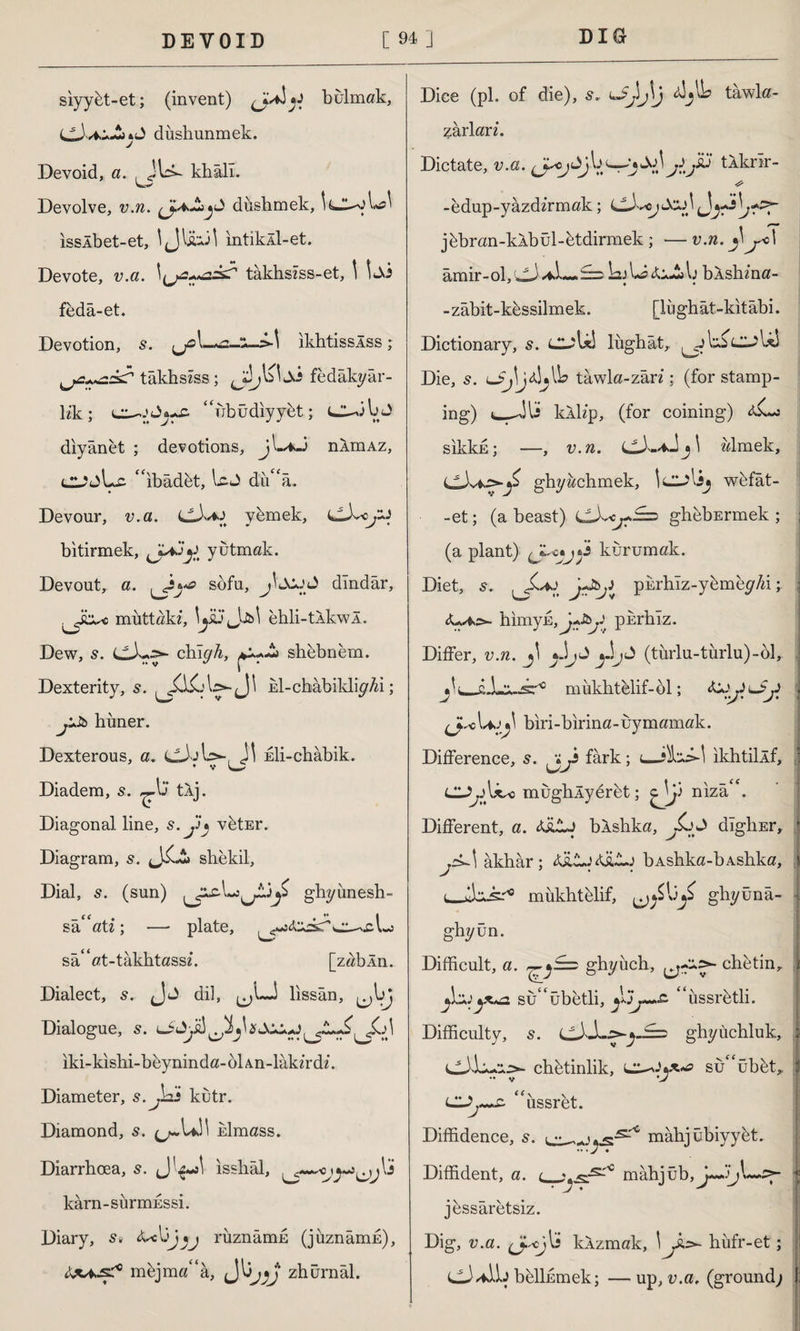 DEVOID [ 94 ] DIG
siyyĕt-et; (invent) بولمق bŭlmak,
دوشنمك dŭshunmek.
Devoid, a. خالی khālī.
Devolve, v.n. دوشمك dŭshmek, اصابت ا
issĂbet-et, انتقال ا intikĂl-et.
Devote, v.a. تخصیص ا takhsīss-et, فدا ا
fĕdā-et.
Devotion, s. اختصاص ikhtissĂss;
تخصیص takhsīss; فداكارلق fĕdakyār-
lik; عبودیت “ŭbūdiyyĕt; دیانت
diyānĕt; devotions, نماز nĂmAZ,
عبادت “ibādĕt, دعا dŭ“ā.
Devour, v.a. یمك yĕmek, بیتیرمك
bitirmek, یوتمق yŭtmak.
Devout, a. صوفی sofu, دیندار dīndār,
متقی mŭttaki, اهل تقوا ehli-tĂkwĂ.
Dew, s. چیك chīgh, شبنم shĕbnĕm.
Dexterity, s. ال چابكلكی Ĕl-chābikligḥi;
هنر hŭner.
Dexterous, a. الی چابك Ĕli-chābik.
Diadem, s. تاج tĂj.
Diagonal line, s. وتر vĕtER.
Diagram, s. شكل shĕkil,
Dial, s. (sun) كونش ساعتی ghyŭnesh-
sā“ati; — plate, ساعت تخته سی
sā“at-tăkhtassi. [zabĂn.
Dialect, s. دل dil, لسان lissān, زبان
Dialogue, s. ایكی كشی بیننده اولان لاقردی
iki-kishi-bĕyninda-ōlAn-lākirdi.
Diameter, s. قطر kŭtr.
Diamond, s. الماس Ĕlmass.
Diarrhœa, s. اسهال isshāl, قارن سورمسی
kārn-sŭrmĔssi.
Diary, s. روزنامه rŭznāmĔ (jŭznāmĔ),
مجمعه mĕjma“ă, ژورنال zhŭrnāl.
Dice (pl. of die), s. طاوله زارلری tăwla-
zārlari.
Dictate, v.a. تقریر ایدوب یازدرمق tĂkrīr-
-ĕdup-yāzdirmak; جبرا قبول ایتدرمك
jĕbran-kĂbŭl-ĕtdirmek; — v.n. آمر اول
āmir-ol, باشنه ضابط كسلمك bĂshina-
-zābit-kĕssilmek. [lŭghăt-kitābi.
Dictionary, s. لغات lŭghăt, لغات كتابی
Die, s. طاوله زاری tăwla-zāri; (for stamp-
ing) قالب kĂlip, (for coining) سكه
sikkĔ; —, v.n. اولمك ŭlmek,
كوچمك ghyŭchmek, وفات ا wĕfāt-
-et; (a beast) كبرمك ghĕbERmek;
(a plant) قورومق kŭrumak.
Diet, s. پرهیز یمكی pĔrhīz-yĕmĕghi;
حمیه himyĔ, پرهیز pĔrhīz.
Differ, v.n. درلو درلو اول (tŭrlu-tŭrlu)-ōl,
مختلف اول mŭkhtĕlif-ōl; بری برینه
اویمامق biri-birina-ūymamak.
Difference, s. فرق fărk; اختلاف ikhtilĂf,
مغایرت mŭghĂyĕret; نزاع nizā“.
Different, a. بشقه bĂshka, دیكر dīghER,
اخر ăkhăr; بشقه بشقه bAshka-bAshka,
مختلف mŭkhtĕlif, كوناكون ghyūnā-
ghyūn.
Difficult, a. كوچ ghyŭch, چتین chĕtin,
صعوبتلی sŭ“ūbĕtli, عسرتلی “ŭssrĕtli.
Difficulty, s. كوچلك ghyŭchluk,
چتینلك chĕtinlik, صعوبت sŭ“ūbĕt,
عسرت “ŭssrĕt.
Diffidence, s. محجوبیت măhjūbiyyĕt.
Diffident, a. محجوب măhjūb, جسارتسز
jĕssārĕtsiz.
Dig, v.a. قازمق kĂzmak, حفر ا hŭfr-et;
بللمك bĕllĔmek; — up, v.a. (ground)